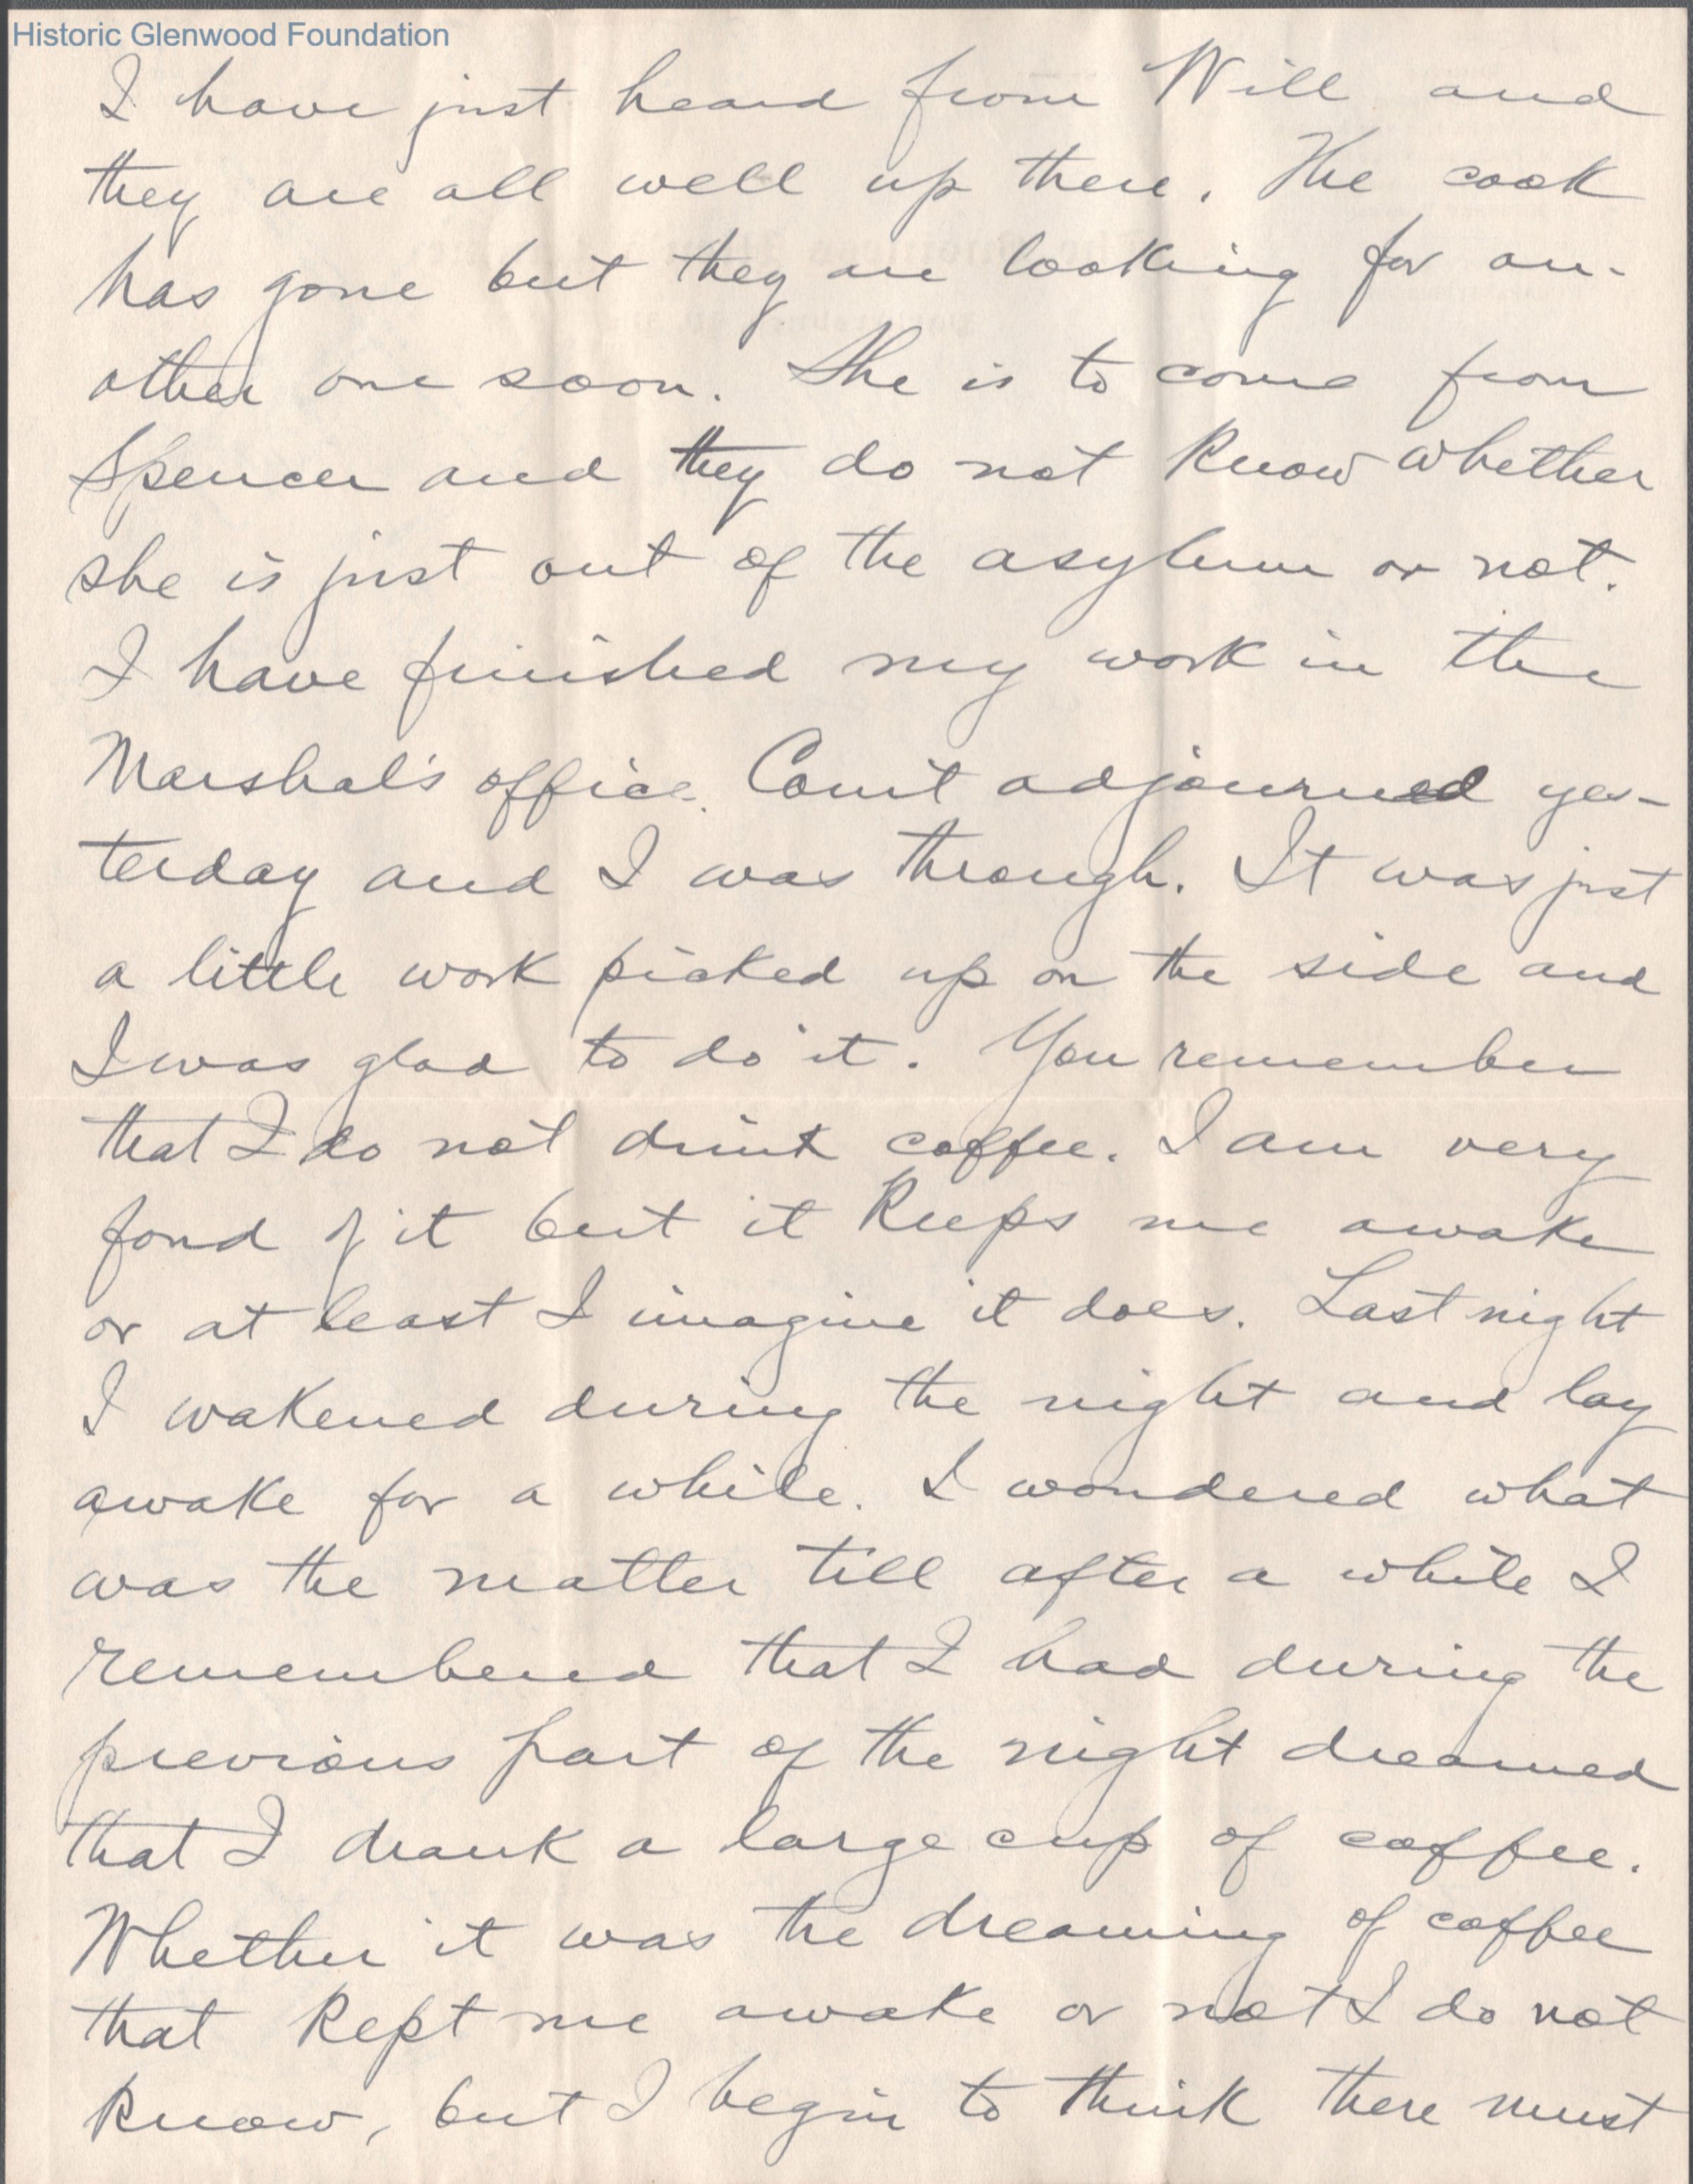 Historic Glenwood Foundation
I have just heard from Will and
they are all well up there. The cook
has gone but they are looking for an-
other one soon. She is to come from
Spencer and they do not know whether
she is just out of the asylum or not.
I have finished my work in the
Marshal's office. Court adjourned yes-
terday and I was through. It was just
a little work picked up on the side and
I was glad to do it. You remember
that I do not drink coffee. I am very
fond of it but it keeps me awake
or at least I imagine it does. Last night
I wakened during the night and lay
awake for a while. I wondered what
was the matter till after a while I
remembered that I had during the
previous part of the night dreamed
that I drank a large cup of coffee.
Whether it was the dreaming of coffee
that kept me awake or not I do not
know, but I begin to think there must